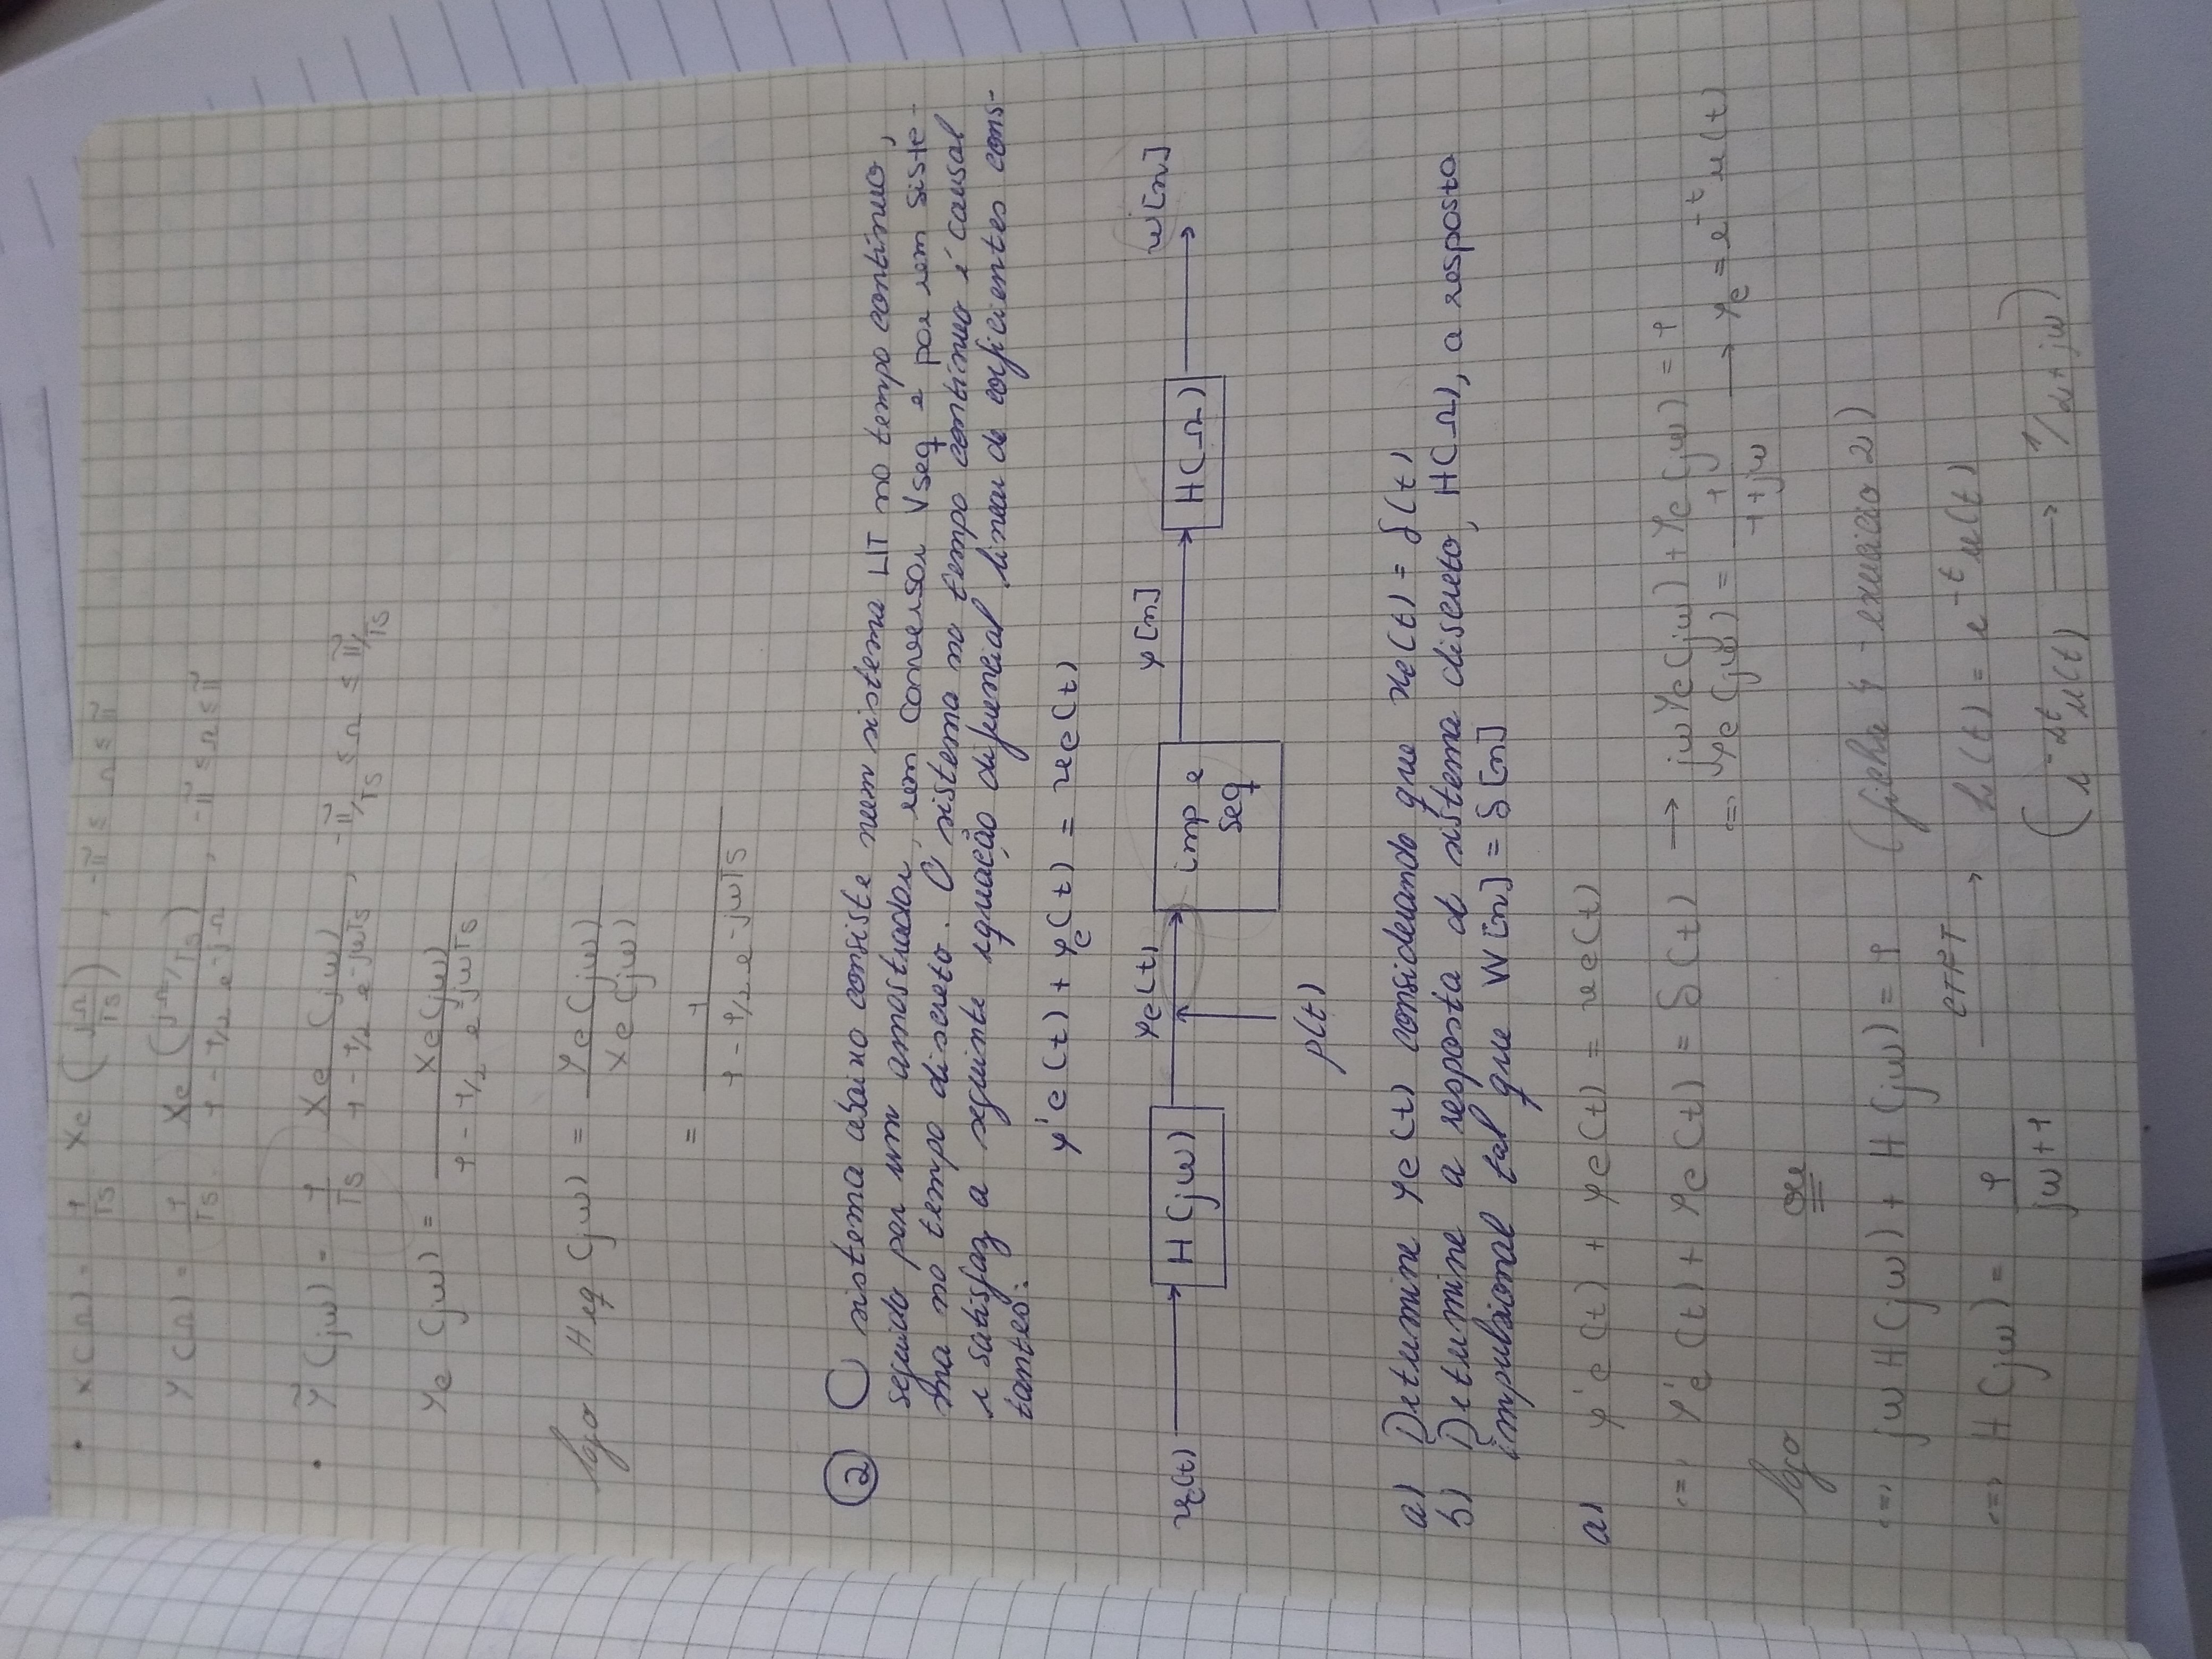 • X(Ω) = 1/Ts Xc (jΩ/Ts) , -π ≤ Ω ≤ π
Y(Ω) = 1/Ts Xc (jΩ/Ts) / 1 - 1/2 e^-jΩ , -π ≤ Ω ≤ π
• Ỹ(jω) = 1/Ts Xc (jω) / 1 - 1/2 e^-jωTs , -π/Ts ≤ Ω ≤ π/Ts
Yc (jω) = Xc(jω) / 1 - 1/2 e^-jωTs
logo Heq (jω) = Yc(jω) / Xc(jω)
= 1 / 1 - 1/2 e^-jωTs
② O sistema abaixo consiste num sistema LIT no tempo contínuo,
seguido por um amostrador, um conversor Vseq e por um siste-
ma no tempo discreto. O sistema no tempo contínuo é causal
e satisfaz a seguinte equação diferencial linear de coeficientes cons-
tantes:
y'c(t) + yc(t) = xc(t)
xc(t) H(jω) yc(t) imp e seq y[n] H(Ω) w[n]
p(t)
a) Determine yc(t) considerando que xc(t) = δ(t)
b) Determine a resposta d sistema discreto, H(Ω), a resposta
impulsional tal que W[n] = δ[n]
a) y'c(t) + yc(t) = xc(t)
<=> y'c(t) + yc(t) = δ(t) → jωYc(jω) + Yc(jω) = 1
<=> Yc(jω) = 1/1+jω → yc = e^-t u(t)
logo ou
<=> jω H(jω) + H(jω) = 1 (ficha 4 - exercício 2)
<=> H(jω) = 1/jω+1 CTFT → h(t) = e^-t u(t)
(e^-αt u(t) → 1/α+jω)